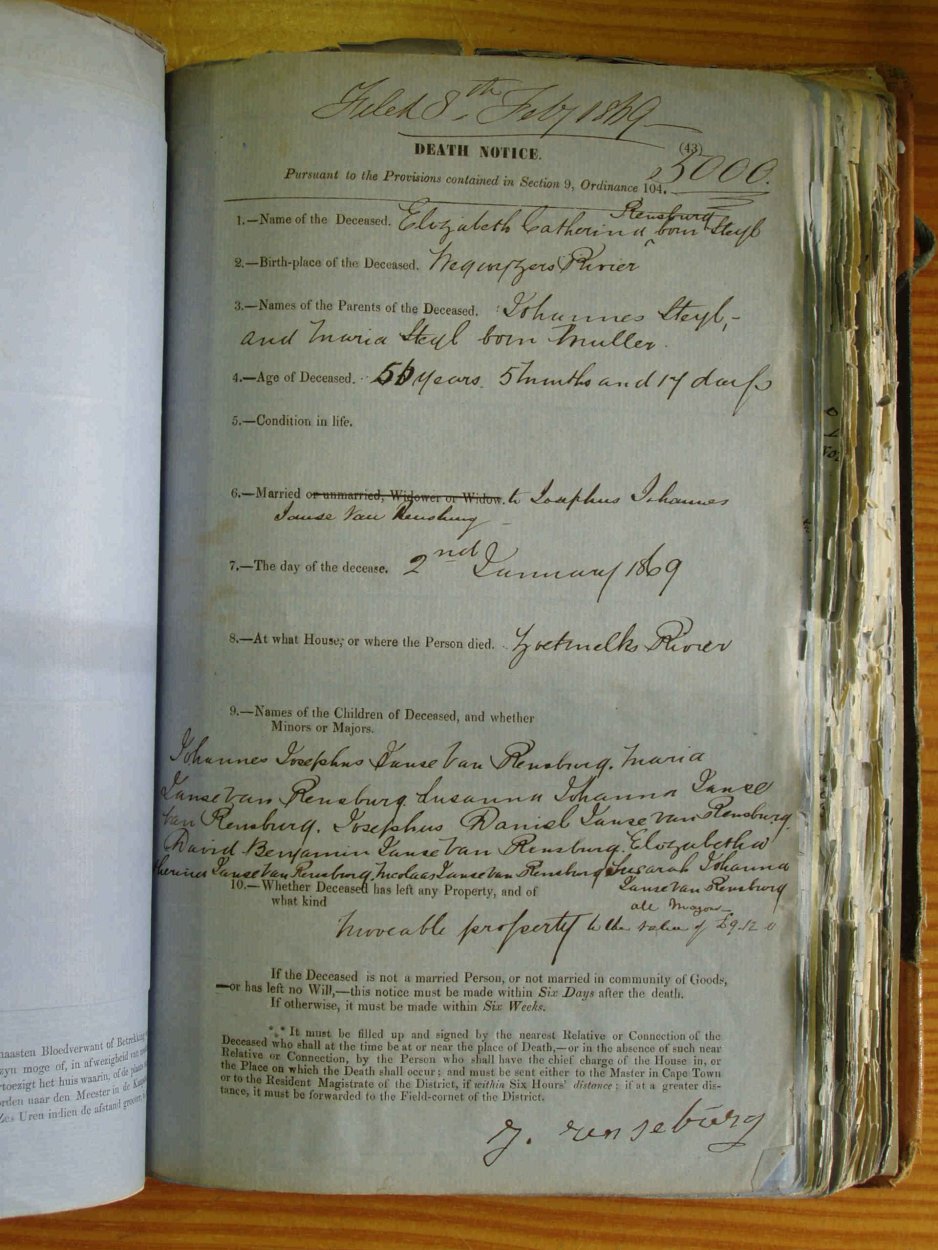 Filed 8th Feby 1869
DEATH NOTICE.
(43)
5000.
Pursuant to the Provisions contained in Section 9, Ordinance 104.
Rensburg
1.—Name of the Deceased. Elizabeth Catherina ^ born Steyl
2.—Birth-place of the Deceased. Rivier
3.—Names of the Parents of the Deceased. Johannes Steyl,-
and Maria Steyl born Muller.
4.—Age of Deceased. 56 years. 5 months and 17 days
5.—Condition in life.
6.—Married or unmarried, Widower or Widow. to Josephus Johannes
Janse Van Rensburg
7.—The day of the decease. 2nd January 1869
8.—At what House, or where the Person died. Zoetmelks Rivier
9.—Names of the Children of Deceased, and whether
Minors or Majors.
Johannes Josephus Janse Van Rensburg. Maria
Janse Van Rensburg. Susanna Johanna Janse
Van Rensburg. Josephus Daniel Janse Van Rensburg.
David Benjamin Janse Van Rensburg. Elizabetha
therina Janse Van Rensburg, Nicolaas Janse Van Rensburg, Johanna
Janse Van Rensburg
10.—Whether Deceased has left any Property, and of
what kind
all Majors
Moveable property to the value of £9.12.0
If the Deceased is not a married Person, or not married in community of Goods,
—or has left no Will,—this notice must be made within Six Days after the death.
If otherwise, it must be made within Six Weeks.
*** It must be filled up and signed by the nearest Relative or Connection of the
Deceased who shall at the time be at or near the place of Death,—or in the absence of such near
Relative or Connection, by the Person who shall have the chief charge of the House in, or
the Place on which the Death shall occur; and must be sent either to the Master in Cape Town
or to the Resident Magistrate of the District, if within Six Hours' distance; if at a greater dis-
tance, it must be forwarded to the Field-cornet of the District.
J. renseburg
naasten Bloedverwant of Betrekking
zyn moge of, in afwezigheid van
toezigt het huis waarin, of de plaats
orden naar den Meester in de
Zes Uren indien de afstand grooter